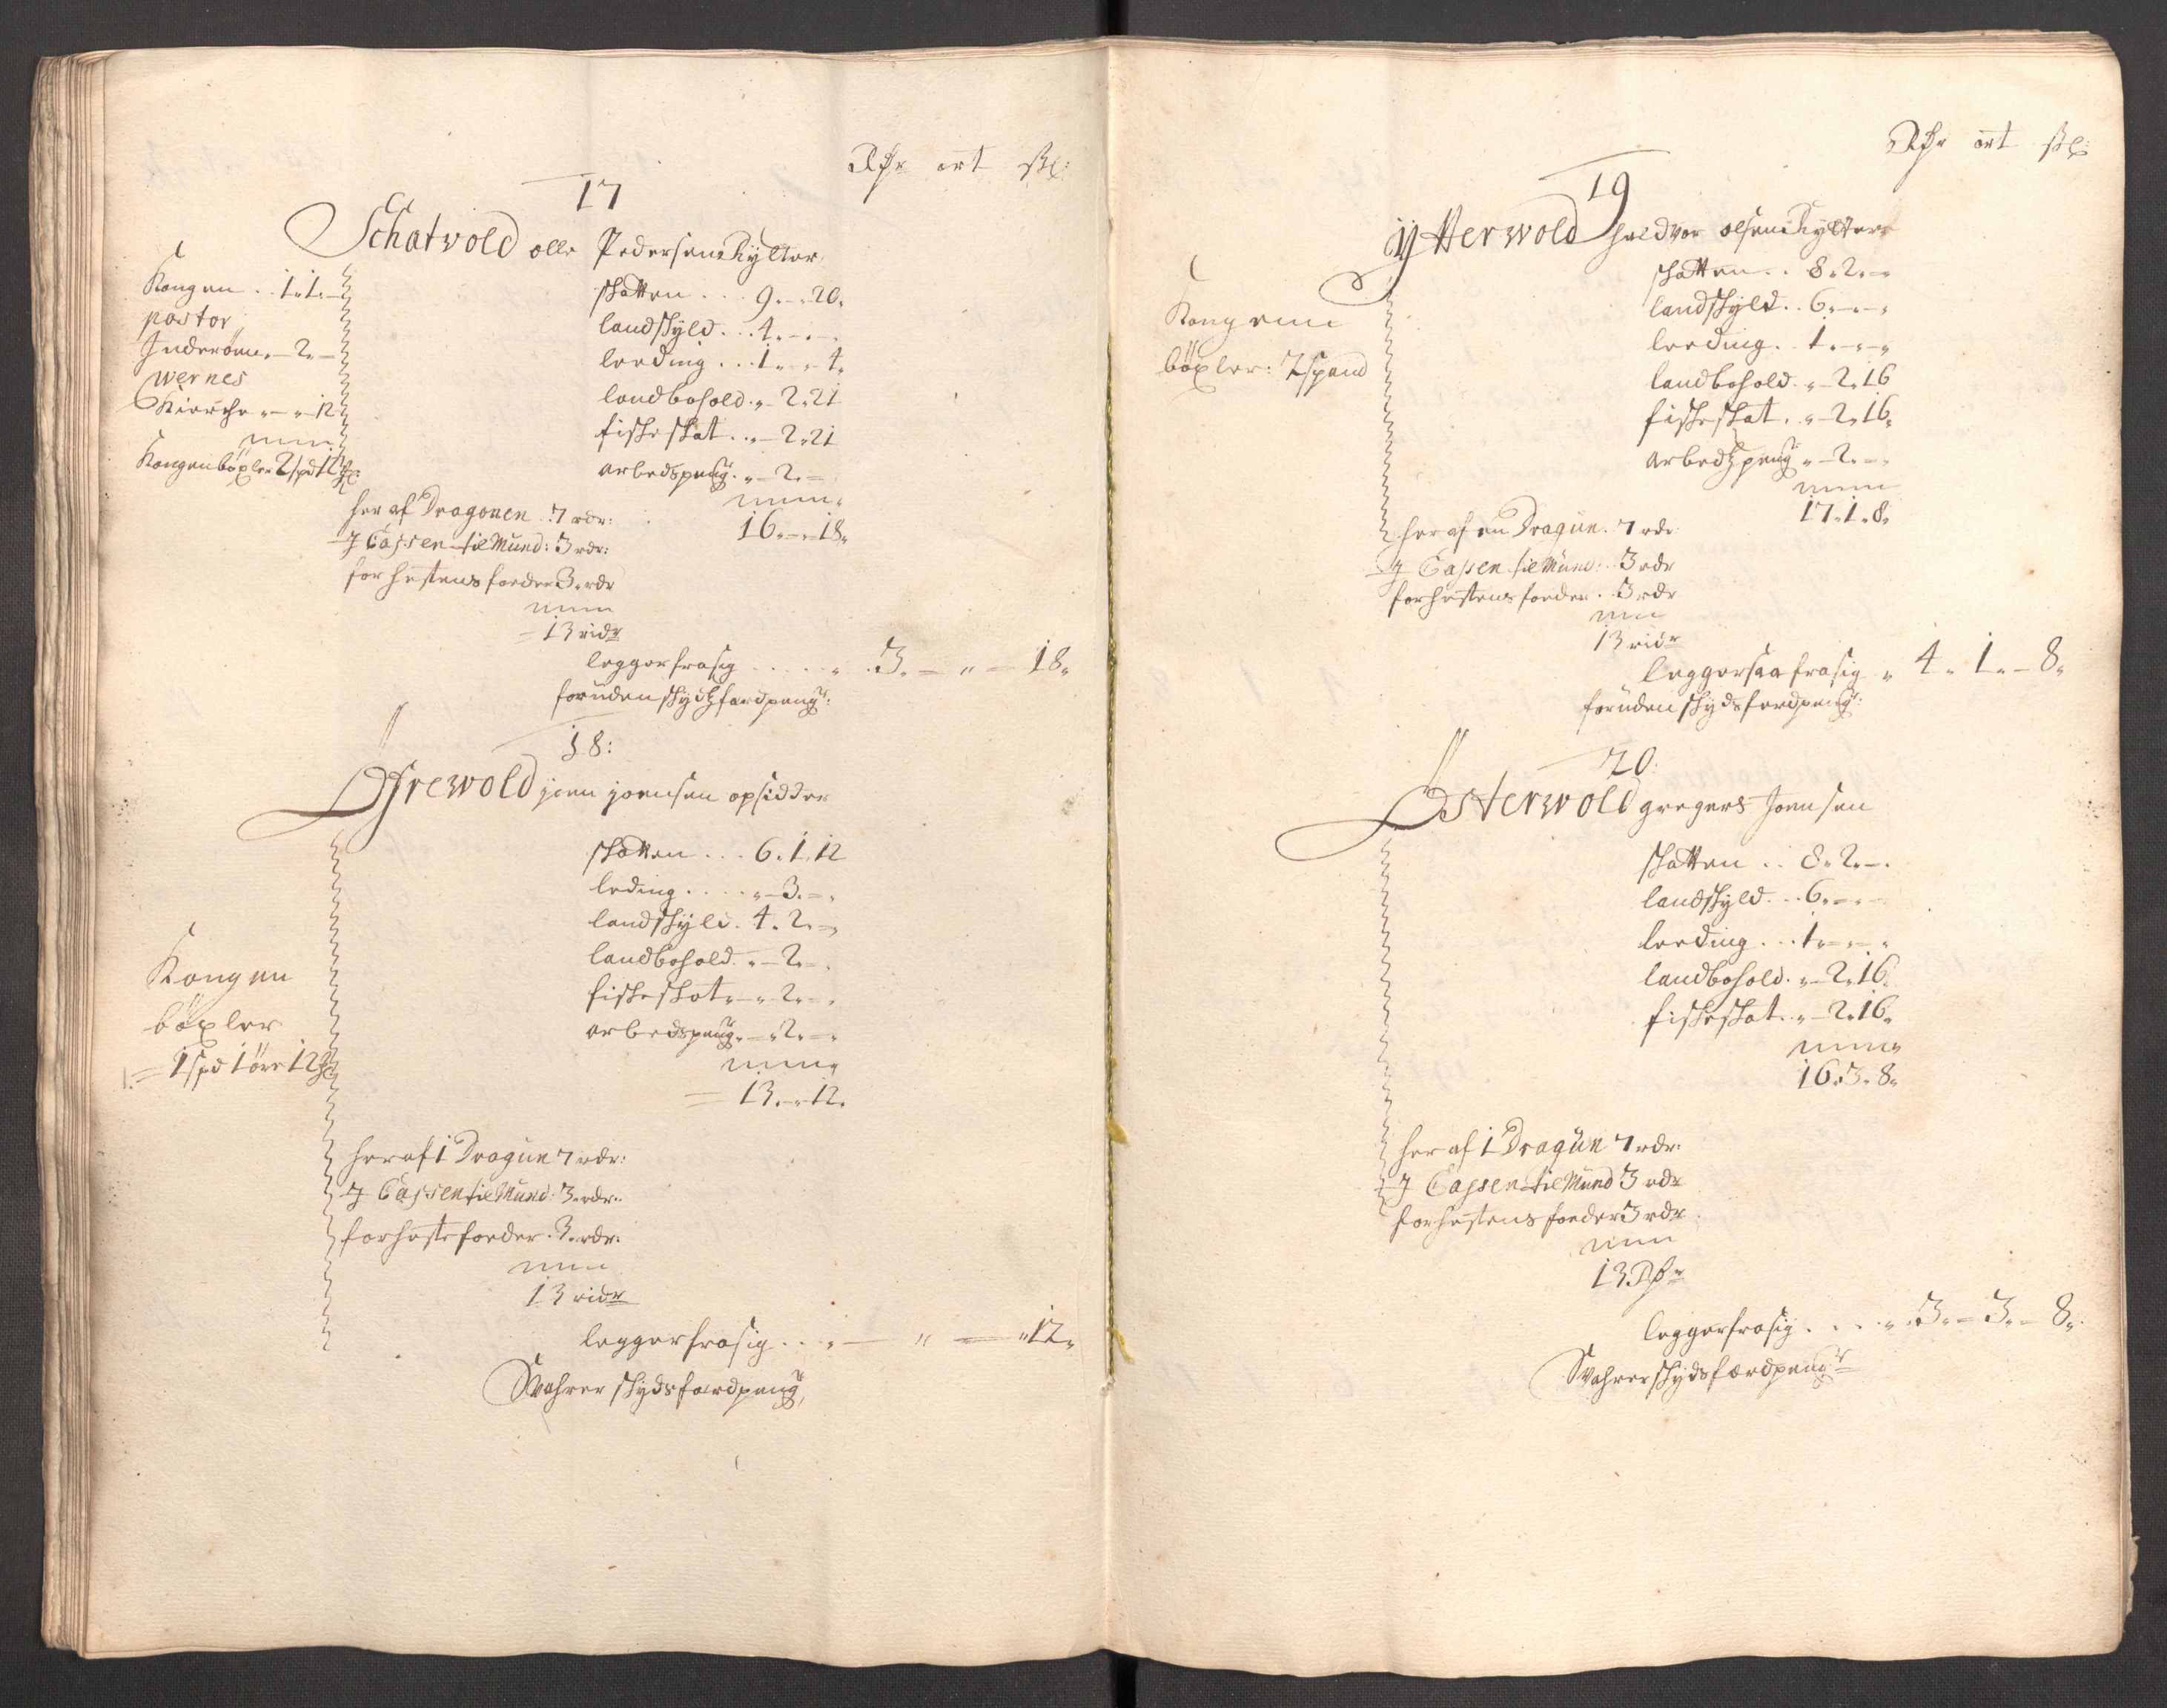 Rdr ort sk:
17
Schatvold olle Pedersen Rytter
Kongen . . 1 „ 1 „ –
pastor
Inderöen „ – 2 „ –
wernes
Kierche „ – „ – 12
Kongen böxler 2 spd 12
skatten . . . 9 „ – „ 20 „
landskyld . . 4 „ – „ –
leeding . . . 1 „ – „ 4 „
landbohold „ – 2 „ 21
fiskeskat . . „ – 2 „ 21
arbedspeng „ – 2 „ –
16 „ – „ 18 „
her af Dragonen 7 rdr:
J Cassen til Mund: 3 rdr:
for hestens foeder 3 rdr
13 ridr
legger fra sig . . . . . „ 3 „ – „ – 18 „
foruden skydtzferdpeng:
18:
Öfrewold joen joensen opsidder
Kongen
böxler
1 spd 1 öre 12
skatten . . . 6 „ 1 „ 12
leding . . . . „ – 3 „ – „
landskyld . 4 „ 2 „ –
landbohold „ – 2 „ – „
fiskeskat „ – „ 2 „ – „
arbedspeng „ – „ 2 „ – „
13 „ – „ 12 „
her af 1 Dragun 7 rdr:
J Cassen til Mund: 3 rdr:
for heste foeder 3 rdr:
13 ridr
legger fra sig . . . „ – „ – „ 12 „
Svahrer skydsferdpeng
Rdr ort sk:
19
ytterwold haldvor olsen Rytter
Kongen
böxler: 2 spand
skatten . . 8 „ 2 „ –
landskyld . . 6 „ – „ – „
leeding . 1 „ – „ – „
landbohold „ – 2 „ 16
fiskeskat . „ – 2 „ 16 „
arbedtzpeng „ – 2 „ – „
17 „ 1 „ 8 „
her af en Dragun . 7 rdr
J Cassen til Mund: 3 rdr
for hestens foeder . 3 rdr
13 ridr
legger saa fra sig „ 4 „ 1 „ – 8 „
foruden skydsferdpeng:
20:
Österwold gregers Joensen
skatten . . 8 „ 2 „ – .
landskyld . . 6 „ – „ –
leeding . . . 1 „ – „ – „
landbohold „ – 2 „ 16
fiskeskat . „ – 2 „ 16 „
16 „ 3 „ 8 „
her af 1 Dragun 7 rdr:
J Cassen til Mund 3 rdr
for hestens foeder 3 rdr
13 Rdr
legger fra sig . . . . „ 3 „ – 3 „ – 8 „
Svahrer skydsferdpeng